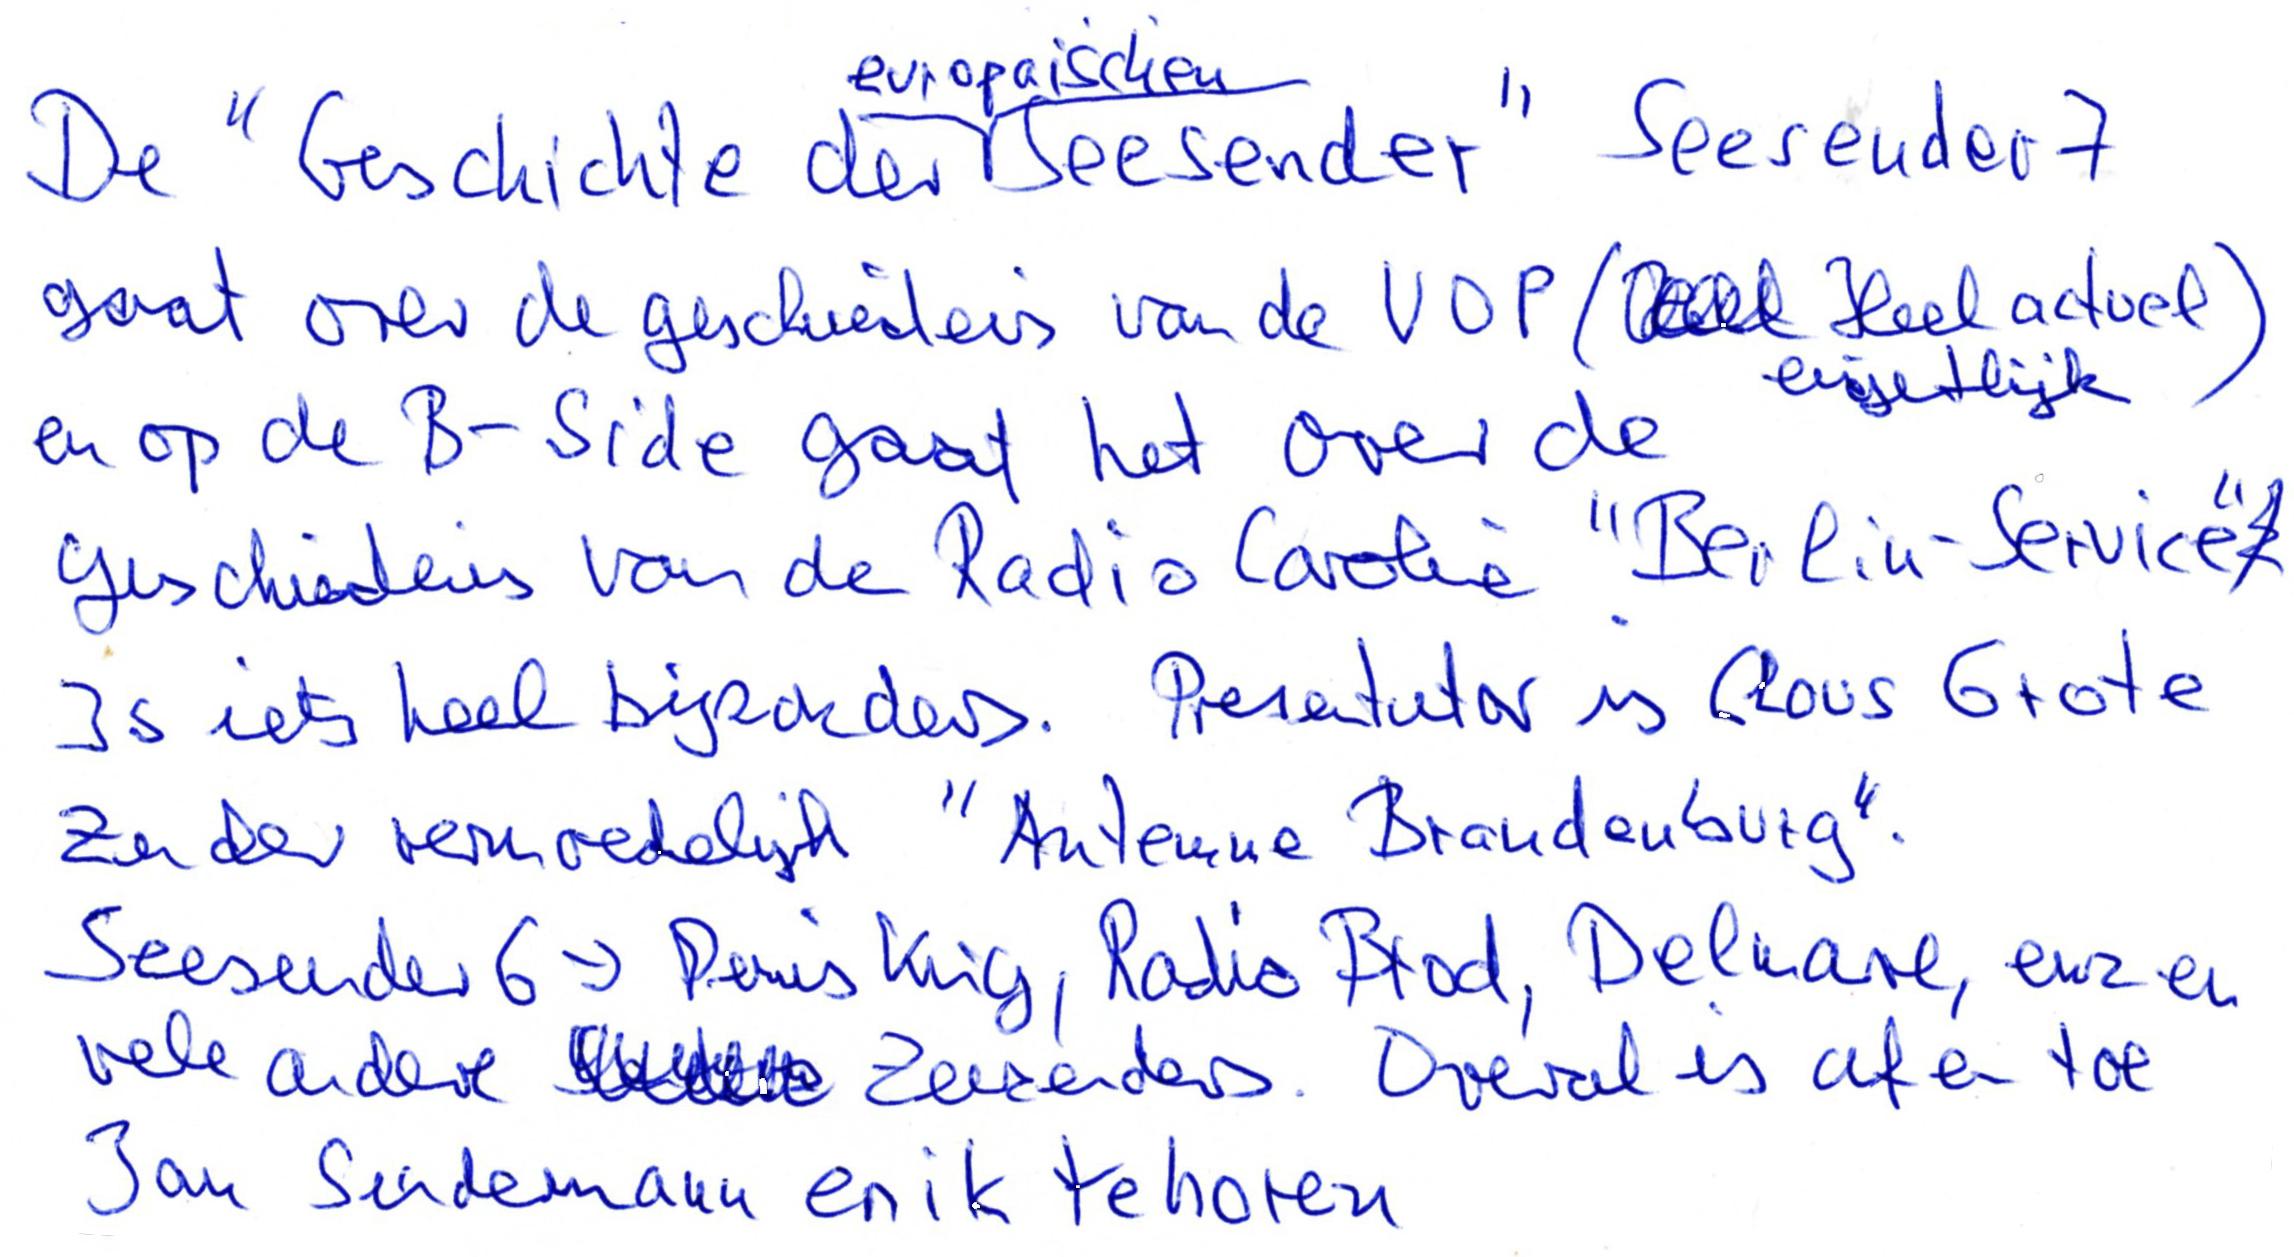 europaischen
De "Geschichte der Seesender" Seesender 7
gaat over de geschiedeis van de VOP (Heel actuel)
eigetlijk
en op de B-Side gaat het over de
geschiedeis van de Radio Carolie "Berlin-Service"
Is iets heel bijzonders. Presentator is Claus Grote
Zender vermoedelijk "Antenne Brandenburg".
Seesender 6 → Denis King, Radio Brod, Delmare, enz en
vele andere Zeezenders. Overal is af en toe
Jan Sundermann en ik te horen